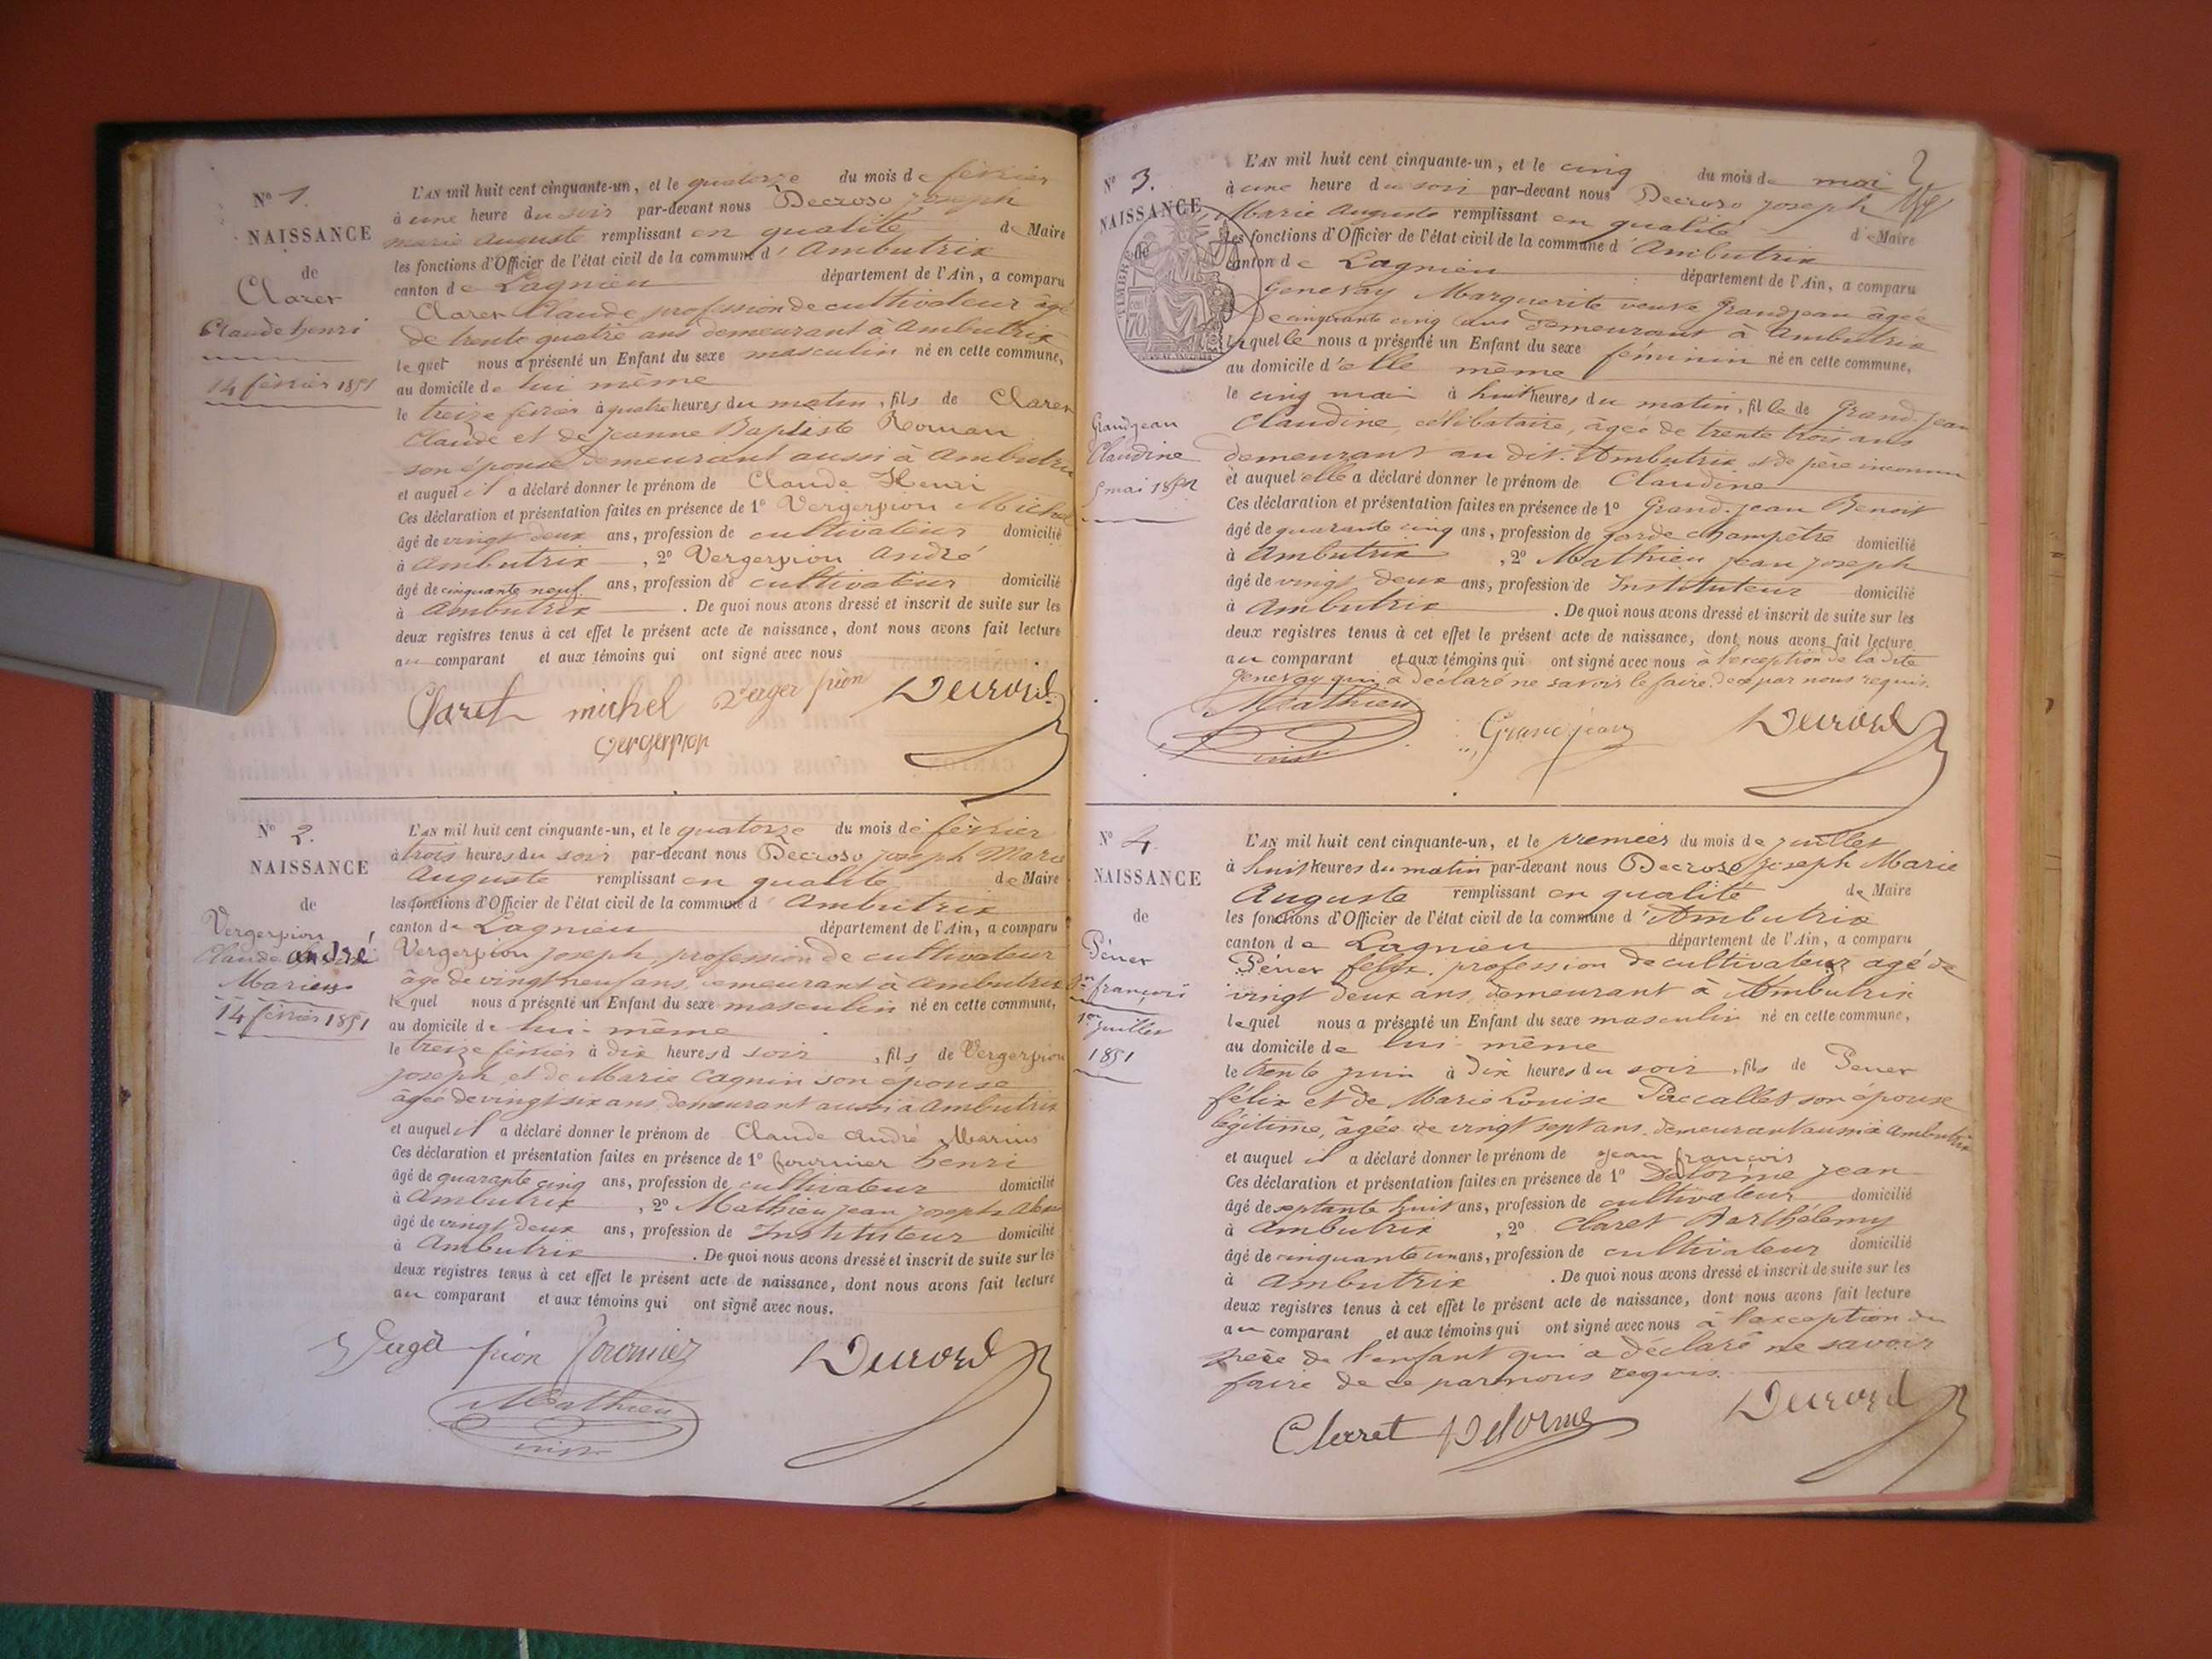 N° 1.
NAISSANCE
de
Claret
Claude henri
14 février 1851
L'AN mil huit cent cinquante-un, et le quatorze du mois de février
à une heure du soir par-devant nous Decroso Joseph
marie Auguste remplissant en qualité de Maire
les fonctions d'Officier de l'état civil de la commune d'Ambutrix
canton de Lagnieu département de l'Ain, a comparu
Claret Claude profession de cultivateur âgé
de trente quatre ans demeurant à Ambutrix
lequel nous a présenté un Enfant du sexe masculin né en cette commune,
au domicile de lui même
le treize février à quatre heures du matin, fils de Claret
Claude et de Jeanne Baptiste Roman
son épouse demeurant aussi à Ambutrix
et auquel il a déclaré donner le prénom de Claude Henri
Ces déclaration et présentation faites en présence de 1° Vergerpion Michel
âgé de vingt deux ans, profession de cultivateur domicilié
à Ambutrix, 2° Vergerpion André
âgé de cinquante neuf ans, profession de cultivateur domicilié
à Ambutrix. De quoi nous avons dressé et inscrit de suite sur les
deux registres tenus à cet effet le présent acte de naissance, dont nous avons fait lecture
au comparant et aux témoins qui ont signé avec nous
Claret michel Verger pion Decroso
vergerpion
N° 2.
NAISSANCE
de
Vergerpion
Claude andré
Marius
14 février 1851
L'AN mil huit cent cinquante-un, et le quatorze du mois de février
à trois heures du soir par-devant nous Decroso Joseph Marie
Auguste remplissant en qualité de Maire
les fonctions d'Officier de l'état civil de la commune d'Ambutrix
canton de Lagnieu département de l'Ain, a comparu
Vergerpion Joseph, profession de cultivateur
âgé de vingt neuf ans, demeurant à Ambutrix
lequel nous a présenté un Enfant du sexe masculin né en cette commune,
au domicile de lui-même
le treize février à dix heures d soir, fils de Vergerpion
Joseph, et de Marie Cagnin son épouse
âgée de vingt six ans demeurant aussi à Ambutrix
et auquel il a déclaré donner le prénom de Claude André Marius
Ces déclaration et présentation faites en présence de 1° fournier henri
âgé de quarante cinq ans, profession de cultivateur domicilié
à Ambutrix, 2° Mathieu Jean Joseph
âgé de vingt deux ans, profession de Instituteur domicilié
à Ambutrix. De quoi nous avons dressé et inscrit de suite sur les
deux registres tenus à cet effet le présent acte de naissance, dont nous avons fait lecture
au comparant et aux témoins qui ont signé avec nous.
Verger pion Fournier Decroso
Mathieu
inst
2
N° 3.
NAISSANCE
de
TIMBRE
70
Grandjean
Claudine
5 mai 1851
L'AN mil huit cent cinquante-un, et le cinq du mois de mai
à une heure du soir par-devant nous Decroso Joseph
Marie Auguste remplissant en qualité de Maire
les fonctions d'Officier de l'état civil de la commune d'Ambutrix
canton de Lagnieu département de l'Ain, a comparu
Genevay Marguerite veuve Grandjean âgée
de cinquante cinq ans demeurant à Ambutrix
laquelle nous a présenté un Enfant du sexe féminin né en cette commune,
au domicile d'elle même
le cinq mai à huit heures du matin, fille de Grand-jean
Claudine, célibataire, âgée de trente trois ans
demeurant au dit Ambutrix et de père inconnu
et auquel elle a déclaré donner le prénom de Claudine
Ces déclaration et présentation faites en présence de 1° Grand-jean Benoit
âgé de quarante cinq ans, profession de garde champêtre domicilié
à Ambutrix, 2° Mathieu Jean Joseph
âgé de vingt deux ans, profession de Instituteur domicilié
à Ambutrix. De quoi nous avons dressé et inscrit de suite sur les
deux registres tenus à cet effet le présent acte de naissance, dont nous avons fait lecture
au comparant et aux témoins qui ont signé avec nous à l'exception de la dite
Genevay qui a déclaré ne savoir le faire de ce par nous requis.
Mathieu Grandjean Decroso
inst
N° 4.
NAISSANCE
de
Péner
Jn françois
1er juillet
1851
L'AN mil huit cent cinquante-un, et le premier du mois de juillet
à huit heures du matin par-devant nous Decroso Joseph Marie
Auguste remplissant en qualité de Maire
les fonctions d'Officier de l'état civil de la commune d'Ambutrix
canton de Lagnieu département de l'Ain, a comparu
Péner félix, profession de cultivateur âgé de
vingt deux ans, demeurant à Ambutrix
lequel nous a présenté un Enfant du sexe masculin né en cette commune,
au domicile de lui-même
le trente juin à dix heures du soir, fils de Pener
félix et de Marie Louise Paccallet son épouse
légitime, âgée de vingt sept ans, demeurant aussi à Ambutrix
et auquel il a déclaré donner le prénom de Jean françois
Ces déclaration et présentation faites en présence de 1° Delorme Jean
âgé de septante huit ans, profession de cultivateur domicilié
à Ambutrix, 2° Claret Barthélemy
âgé de cinquante un ans, profession de cultivateur domicilié
à Ambutrix. De quoi nous avons dressé et inscrit de suite sur les
deux registres tenus à cet effet le présent acte de naissance, dont nous avons fait lecture
au comparant et aux témoins qui ont signé avec nous à l'exception du
père de l'enfant qui a déclaré ne savoir
faire de ce par nous requis.
Claret Delorme Decroso